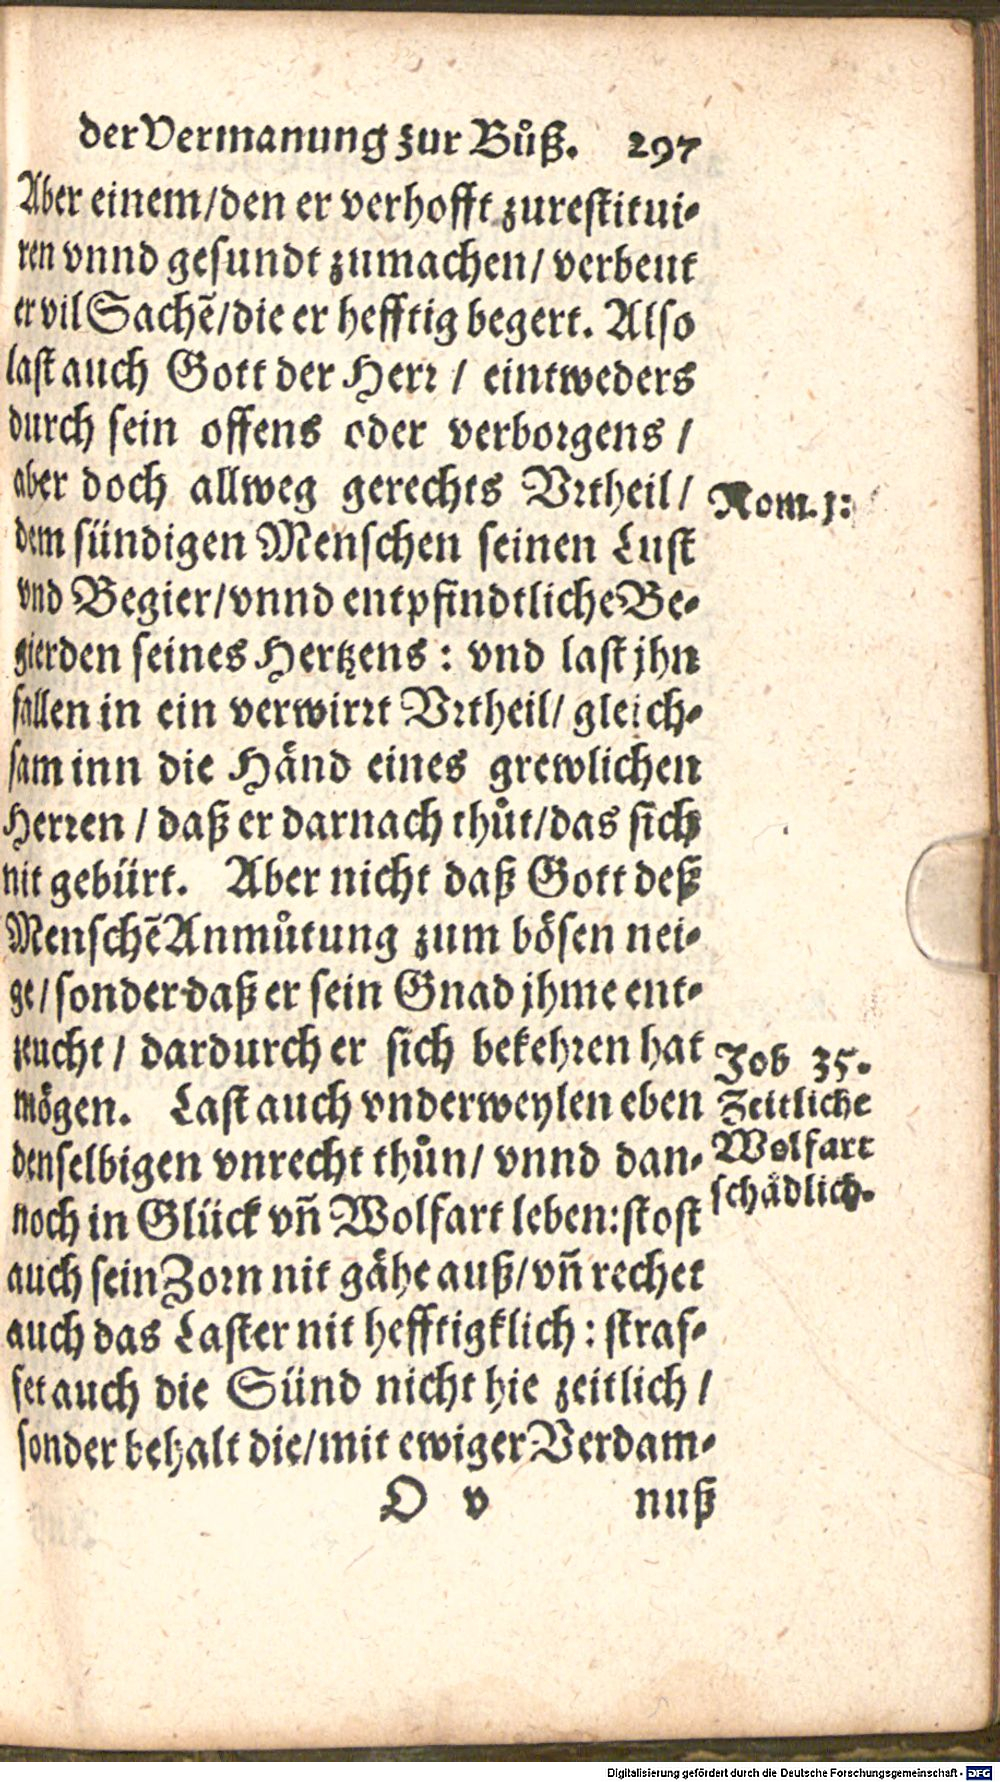 der Vermanung zur Bůß. 297
Aber einem/den er verhofft zurestitui-
ren vnnd gesundt zumachen/ verbeut
er vil Sachẽ/die er hefftig begert. Also
last auch Gott der Herr / eintweders
durch sein offens oder verborgens /
aber doch allweg gerechts Vrtheil/
dem sündigen Menschen seinen Lust
vnd Begier/vnnd entpfindtliche Be-
gierden seines Hertzens : vnd last jhn
fallen in ein verwirrt Vrtheil/ gleich-
sam inn die Händ eines grewlichen
Herren / daß er darnach thůt/das sich
nit gebürt. Aber nicht daß Gott deß
Menschẽ Anmůtung zum bösen nei-
ge/ sonder daß er sein Gnad jhme ent-
zeucht / dardurch er sich bekehren hat
mögen. Last auch vnderweylen eben
denselbigen vnrecht thůn/ vnnd dan-
noch in Glück vñ Wolfart leben: stost
auch sein Zorn nit gähe auß/vñ rechet
auch das Laster nit hefftigklich : straf-
fet auch die Sünd nicht hie zeitlich /
sonder behalt die/mit ewiger Verdam-
O v nuß
Rom. 1:
Job 35.
Zeitliche
Wolfart
schädlich.
Digitalisierung gefördert durch die Deutsche Forschungsgemeinschaft - DFG